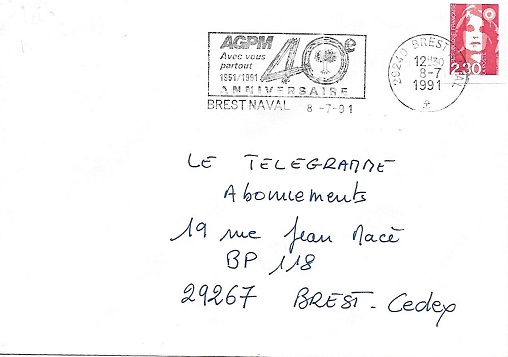 AGPM
Avec vous
partout
1951/1991
40e
ANNIVERSAIRE
BREST NAVAL 8 -7-91
29240 BREST NAVAL
12H30
8-7
1991
2,30
LE TELEGRAMME
Abonnements
19 rue Jean Macé
BP 118
29267 BREST - Cedex